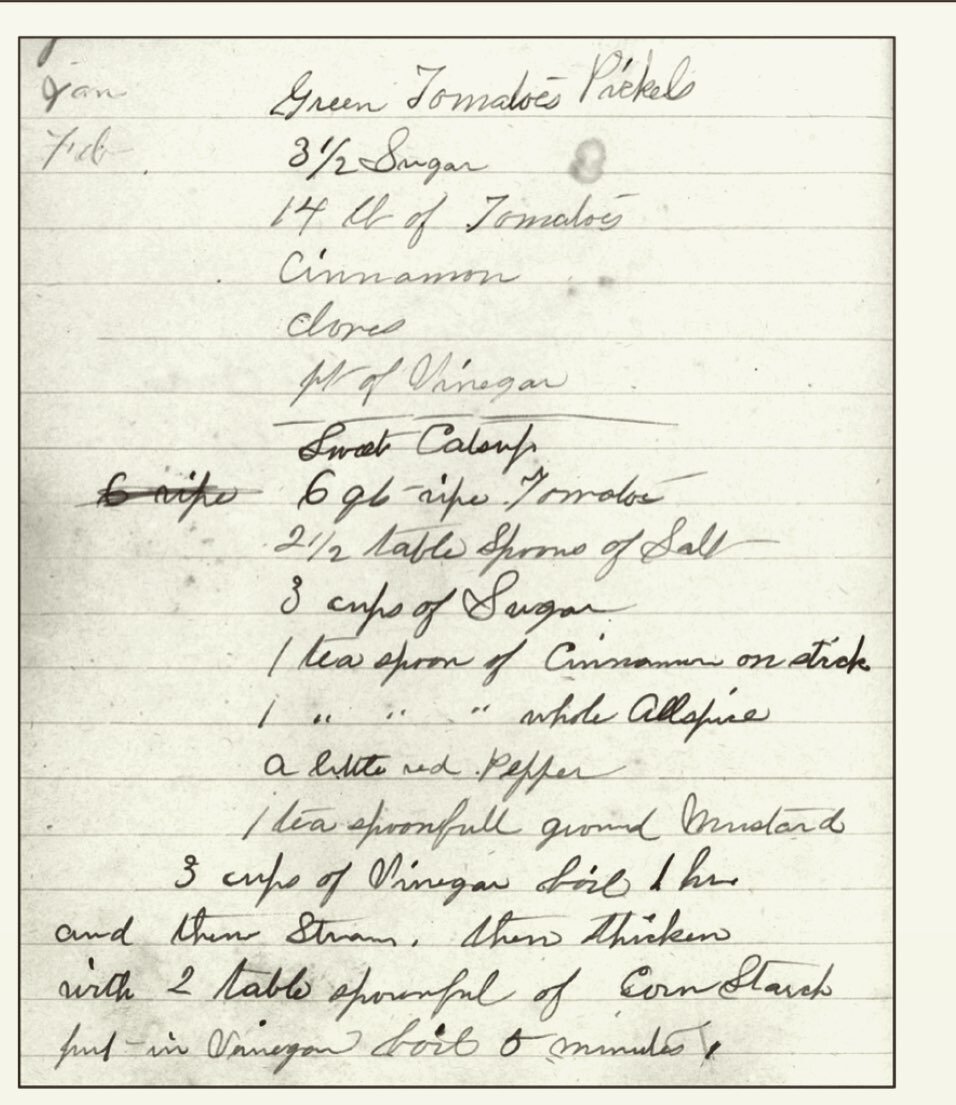 Jan
Feb
Green Tomatoes Pickels
3 1/2 Sugar
14 lb of Tomatoes
Cinnamon
cloves
pt of Vinegar
Sweet Catsup
6 ripe 6 qt ripe Tomatoe
2 1/2 table Spoons of Salt
3 cups of Sugar
1 tea spoon of Cinnamon on stick
1 " " " whole Allspice
a little red Pepper
1 tea spoonfull ground Mustard
3 cups of Vinegar boil 1 hr
and then Strain. then thicken
with 2 table spoonful of Corn Starch
put in Vinegar boil 5 minutes.